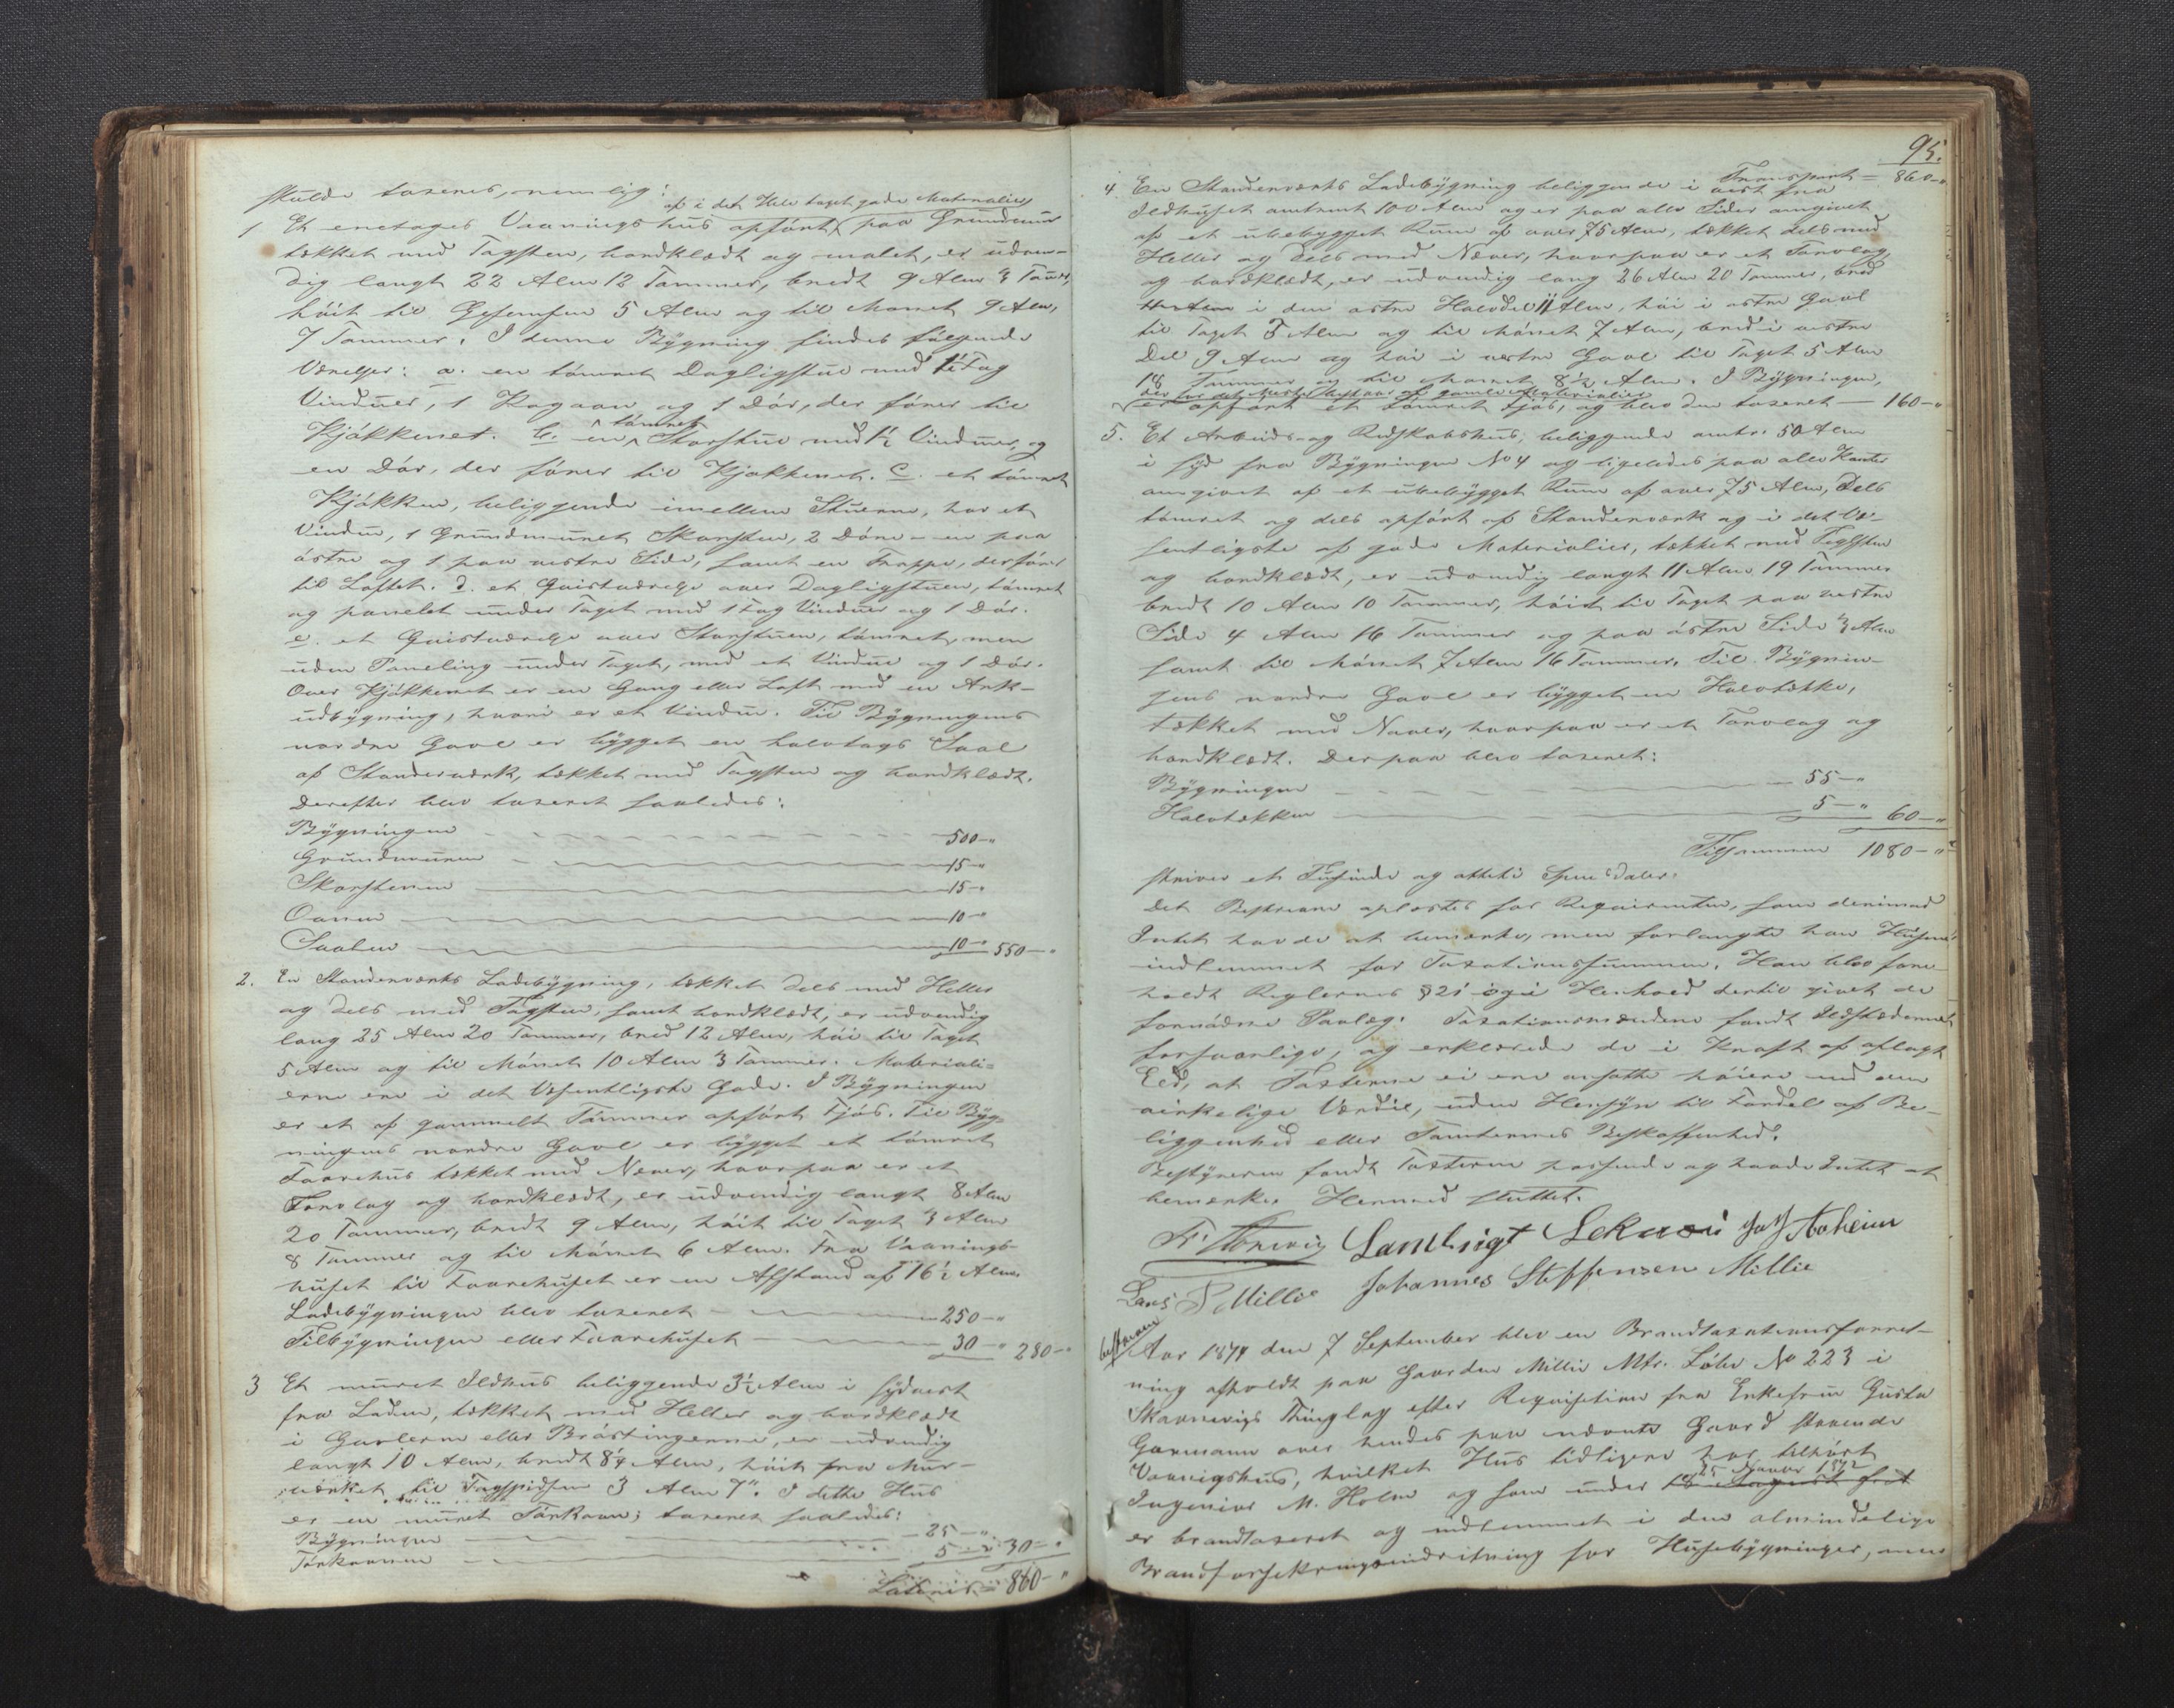 skulde taxeres, nemlig:
af i det Hele taget gode Materialier
1 Et enetages Vaaningshus opført paa Grundmuur
tækket med Tagsten, bordklædt og malet, er udven-
dig langt 22 Alen 12 Tommer, bredt 9 Alen 3 Tommer,
høit til Gesemsen 5 Alen og til Mønet 9 Alen,
7 Tommer. I denne Bygning findes følgende
Værelser: a. en tømret Dagligstue med Fag
Vinduer, 1 Kogeovn og 1 Dør, der fører til
Kjøkkenet. b. en tømret Storstue med 1½ Vinduer og
en Dør, der fører til Kjøkkenet. c. et tømret
Kjøkken, beliggende imellem Stuerne, har et
Vindue, 1 Grundmuret Skorsten, 2 Døre - en paa
østre og 1 paa vestre Side, samt en Trappe, der fører
til Loftet. d. et Qvistværelse over Dagligstuen, tømret
og panelet under Taget med 1 Fag Vinduer og 1 Dør.
e. et Qvistværelse over Storstuen, tømret, men
uden Paneling under Taget, med et Vindue og 1 Dør.
Over Kjøkkenet er en Gang eller Loft med en Ark-
udbygning, hvori er et Vindue. Til Bygningens
nordre Gavl er bygget en halvtags Sval
af Standerværk, tækket med Tagsten og bordklædt.
Derefter blev taxeret saaledes:
Bygningen 500-"
Grundmuren 15-"
Skorstenen 15-"
Ovnen 10-"
Svalen 10-" 550-"
2. En Standerværks Ladebygning, tækket dels med Heller
og dels med Tagsten, samt bordklædt, er udvendig
lang 25 Alen 20 Tommer, bred 12 Alen, høi til Taget
5 Alen og til Mønet 10 Alen 3 Tommer. Materiali-
erne ere i det Væsentligste Gode. I Bygningen
er et af gammelt Tømmer opført Fjøs. Til Byg-
ningens nordre Gavl er bygget et tømret
Faarehus tækket med Næver, hvorpaa er et
Torvlag og bordklædt, er udvendig langt 8 Alen
20 Tommer, bredt 9 Alen, høit til Taget 3 Alen
8 Tommer og til Mønet 6 Alen. Fra Vaanings-
huset til Faarehuset er en Afstand af 16½ Alen.
Ladebygningen blev taxeret 250-"
Tilbygningen eller Faarehuset 30-" 280-"
3 Et muret Ildhus beliggende 3½ Alen i sydvest
fra Laden, tækket med Heller og bordklædt
i Gavlerne eller Brøstingerne, er udvendig
langt 10 Alen, bredt 8¼ Alen, høit fra Mur-
værket til Tagspidsen 3 Alen 7". I dette Hus
er en muret Tørkeovn; taxeret saaledes:
Bygningen 25-"
Tørkeovnen 5-" 30-"
Lateris 860-"
95.
Transport 860-"
4 En Standerværks Ladebygning beliggende i vest fra
Ildhuset omtrent 100 Alen og er paa alle Sider omgivet
af et ubebygget Rum af over 75 Alen, tækket dels med
Heller og dels med Næver, hvorpaa er et Torvlag,
og bordklædt, er udvendig lang 26 Alen 20 Tommer, bred
i den østre Halvdel 11 Alen, høi i østre Gavl
til Taget 3 Alen og til Mønet 7 Alen, bred i vestre
Del 9 Alen og høi i vestre Gavl til Taget 5 Alen
18 Tommer og til Mønet 8½ Alen. I Bygningen,
der for det Meste bestaar af gamle Materialier
er opført et tømret Fjøs, og blev den taxeret 160-"
5. Et Arbeids- og Redskabshus, beliggende omtr. 50 Alen
i syd fra Bygningen No 4 og ligeledes paa alle Kanter
omgivet af et ubebygget Rum af over 75 Alen, dels
tømret og dels opført af Standerværk og i det Væ-
sentligste af gode Materialier, tækket med Teglsten
og bordklædt, er udvendig langt 11 Alen 19 Tommer
bredt 10 Alen 10 Tommer, høit til Taget paa vestre
Side 4 Alen 16 Tommer og paa østre Side 3 Alen
samt til Mønet 7 Alen 16 Tommer. Til Bygnin-
gens nordre Gavl er bygget en Halvtække,
tækket med Næver, hvorpaa er et Torvlag og
bordklædt. Derpaa blev taxeret:
Bygningen 55-"
Halvtækken 5-" 60-"
Tilsammen 1080-"
skriver et Tusinde og otteti Speciedaler.
Det Beskrevne oplæstes for Reqvirenten, som derimod
Intet havde at bemærke, men forlangte han Husene
indlemmet for Taxationssummen. Han blev fore-
holdt Reglernes § 21 i Henhold dertil givet de
fornødne Paalæg. Taxationsmændene fandt Ildstederne
forsvarlige, og erklærede de i Kraft af aflagt
Eed, at Taxterne ei ere ansatte høiere end den
virkelige Værdie, uden Hensyn til Fordel af Be-
liggenhed eller Tomternes Beskaffenhed.
Bestyreren fandt Taxterne passende og havde Intet at
bemærke. Hermed sluttet.
Lars P Millie Johannes Steffensen Millie
Aar 1874 den 7 September blev en Brandtaxationsforret-
ning afholdt paa Gaarden Millie Mtr. Løbe No 223 i
Skaanevigs Thinglag efter Reqvisition fra Enkefru Gusta
Garmann over hendes paa nævnte Gaard staaende
Vaaningshus, hvilket Hus tidligere har tilhørt
Ingeniør M. Holm og som under 25 Januar 1872
er brandtaxeret og indlemmet i den almindelige
Brandforsikringsindretning for Husebygninger, men